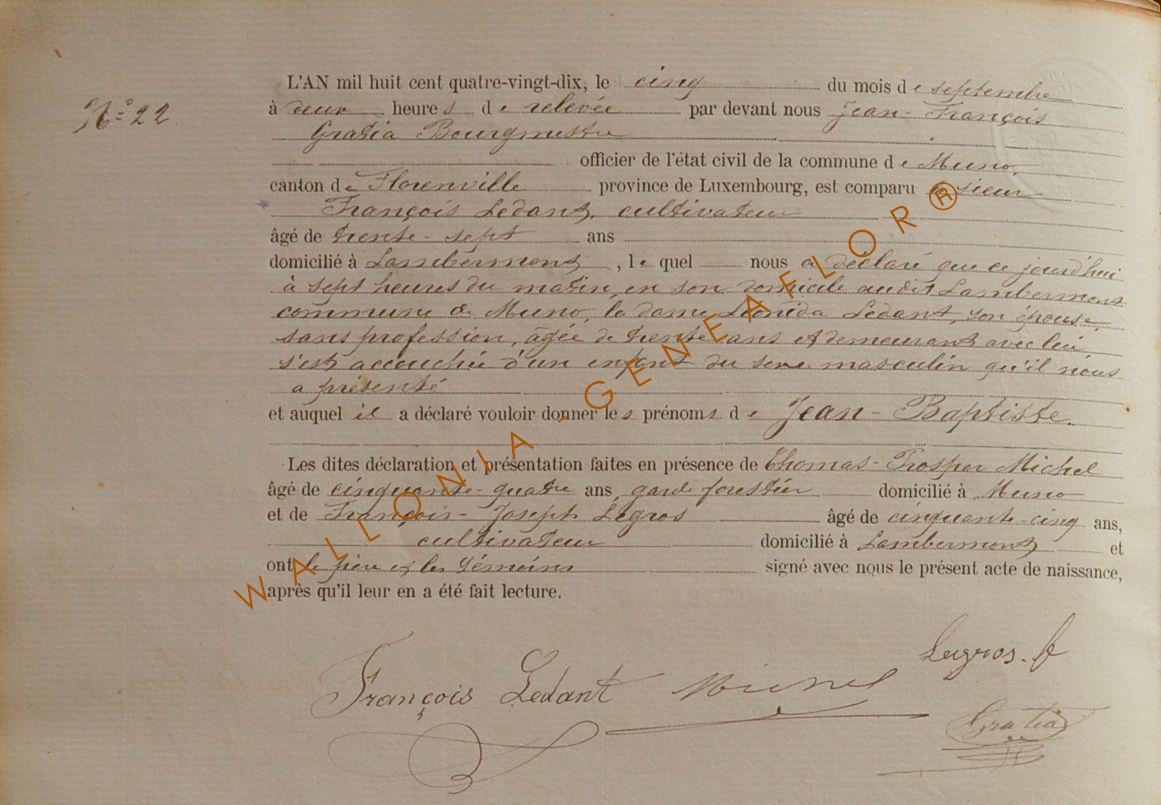 L'AN mil huit cent quatre-vingt-dix, le cinq du mois de septembre
N° 22.
à deux heures de relevée par devant nous Jean-François
Gratia Bourgmestre
officier de l'état civil de la commune de Muno,
canton de Florenville, province de Luxembourg, est comparu le sieur
François Ledant, cultivateur
âgé de trente-sept ans
domicilié à Lambermont, le quel nous a déclaré que ce jourd'hui
à sept heures du matin, en son domicile audit Lambermont
commune de Muno, la dame Léonida Ledant, son épouse,
sans profession, âgée de trente ans et demeurant avec lui,
s'est accouchée d'un enfant du sexe masculin qu'il nous
a présenté
et auquel il a déclaré vouloir donner les prénoms de Jean-Baptiste.
Les dites déclaration et présentation faites en présence de Thomas-Prosper Michel
âgé de cinquante-quatre ans, garde forestier domicilié à Muno
et de François-Joseph Legros âgé de cinquante-cinq ans,
cultivateur domicilié à Lambermont et
ont le père et les témoins signé avec nous le présent acte de naissance,
après qu'il leur en a été fait lecture.
WALLONIA - GENEAFLOR®
Legros. f
François Ledant Michel
Gratia